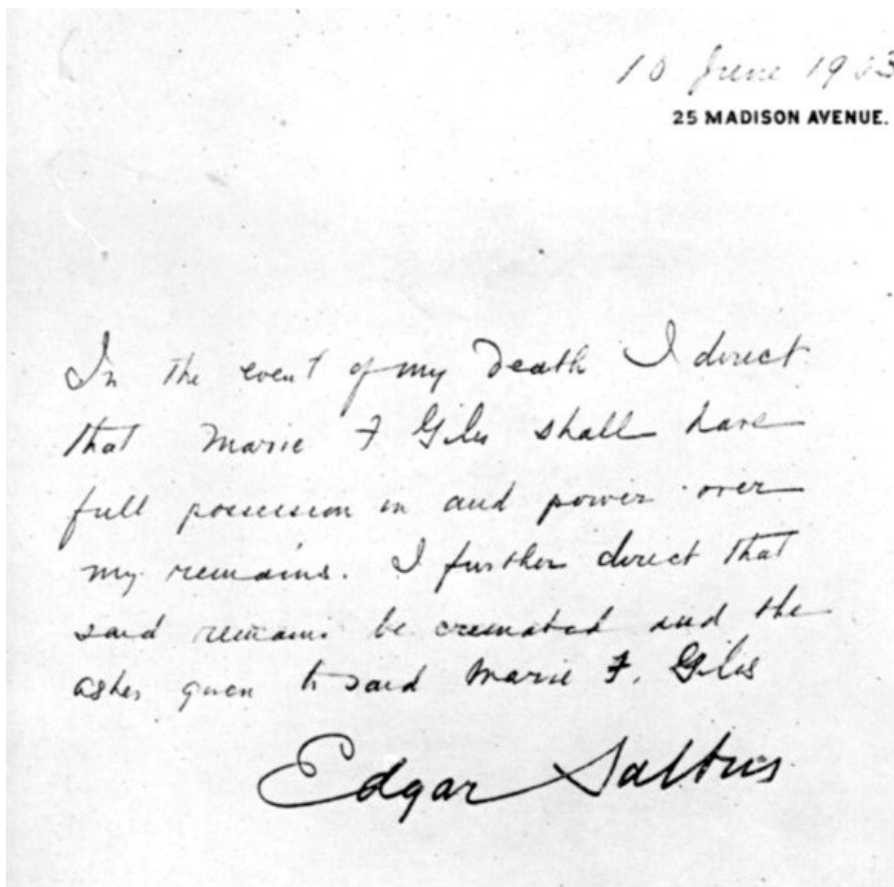 10 June 1903
25 MADISON AVENUE.
In the event of my Death I direct
that Marie F Giles shall have
full possession in and power over
my remains. I further direct that
said remains be cremated and the
ashes given to said Marie F. Giles
Edgar Saltus